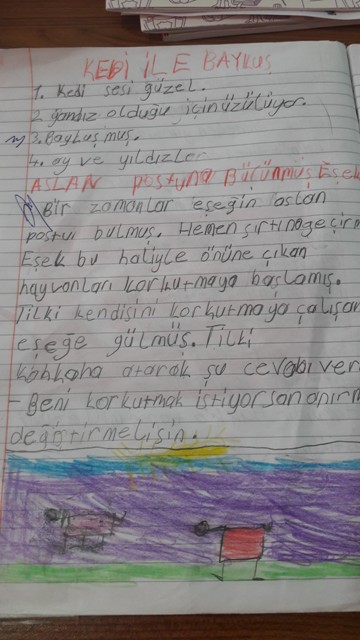 KEDİ İLE BAYKUŞ
1. Kedi sesi güzel.
2 gündüz olduğu için üzülüyor.
3. Baykuş muş.
4. ay ve yıldızler
ASLAN postuna Bürünmüş Eşek
Bir zamanlar eşeğin aslan
postu bulmuş. Hemen sırtına geçirm
Eşek bu haliyle önüne çıkan
hayvanları korkutmaya başlamış.
Tilki kendisini korkutmaya çalışan
eşeğe gülmüş. Tilki
kahkaha atarak şu cevabı ver
- Beni korkutmak istiyorsan anırm
değiştirmelisin.